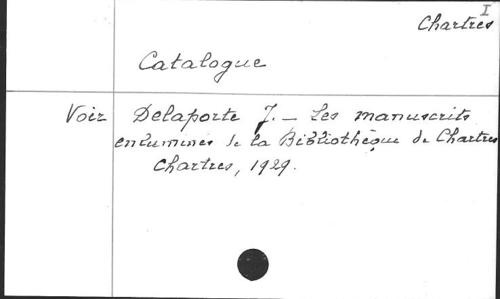 I
Chartres
Catalogue
Voir Delaporte J. _ Les manuscrits
enluminés de la Bibliothèque de Chartres
Chartres, 1929.